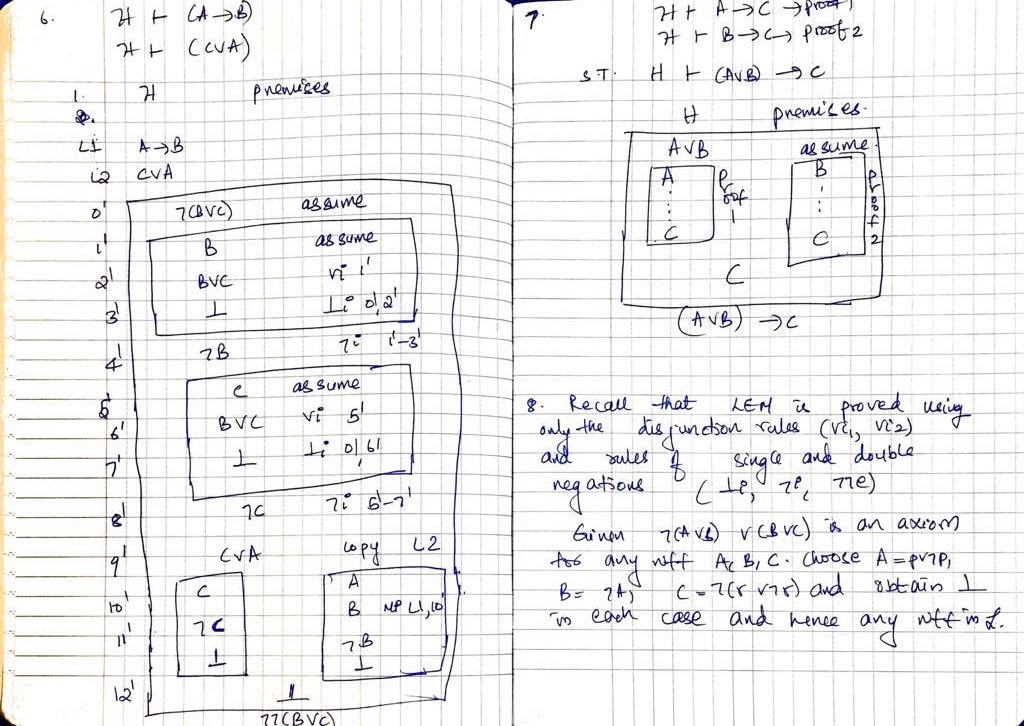 6. H ⊢ (A→B)
H ⊢ (CVA)
1. H premises
2.
L1 A→B
L2 CVA
0' ¬(BVC) assume
1' B assume
2' BVC Vi 1'
3' ⊥ ⊥i 0', 2'
4' ¬B ¬i 1'-3'
5' C assume
6' BVC Vi 5'
7' ⊥ ⊥i 0', 6'
8' ¬C ¬i 5'-7'
9' CVA copy L2
C A
10' B MP L1, 10'
11' ¬C ¬B
⊥ ⊥
12' ⊥
¬¬(BVC)
7. H ⊢ A→C → proof 1
H ⊢ B→C → proof 2
S.T. H ⊢ (AVB) → C
H premises.
AVB assume.
A proof 1 B proof 2
C C
C
(AVB) → C
8. Recall that LEM is proved using
only the disjunction rules (Vi₁, Vi₂)
and rules of single and double
negations (⊥i, ¬i, ¬¬e)
Given ¬(AVB) V (BVC) is an axiom
for any wff A, B, C. Choose A = pV¬p,
B = ¬A, C = ¬(r V¬r) and obtain ⊥
in each case and hence any wff in L.